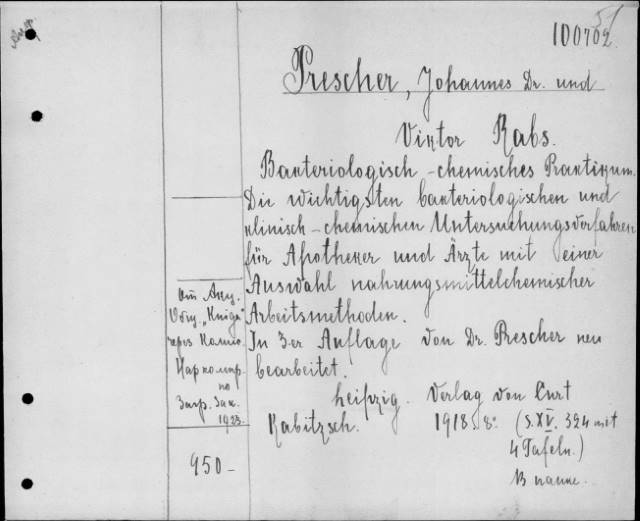 51
100702
Prescher, Johannes Dr. und
Viktor Rabs.
Bakteriologisch-chemisches Praktikum.
Die wichtigsten bakteriologischen und
klinisch-chemischen Untersuchungsverfahren
für Apotheker und Ärzte mit einer
Auswahl nahrungsmittelchemischer
Arbeitsmethoden.
In 3er Auflage von Dr. Prescher neu
bearbeitet.
Leipzig. Verlag von Curt
Kabitzsch. 1918. 8º. (S. XV. 324 mit
4 Tafeln.)
В папке.
От Акц.
Общ. "Книга"
через Комис.
Наркомпр.
по
Загр. Зак.
1923.
950-